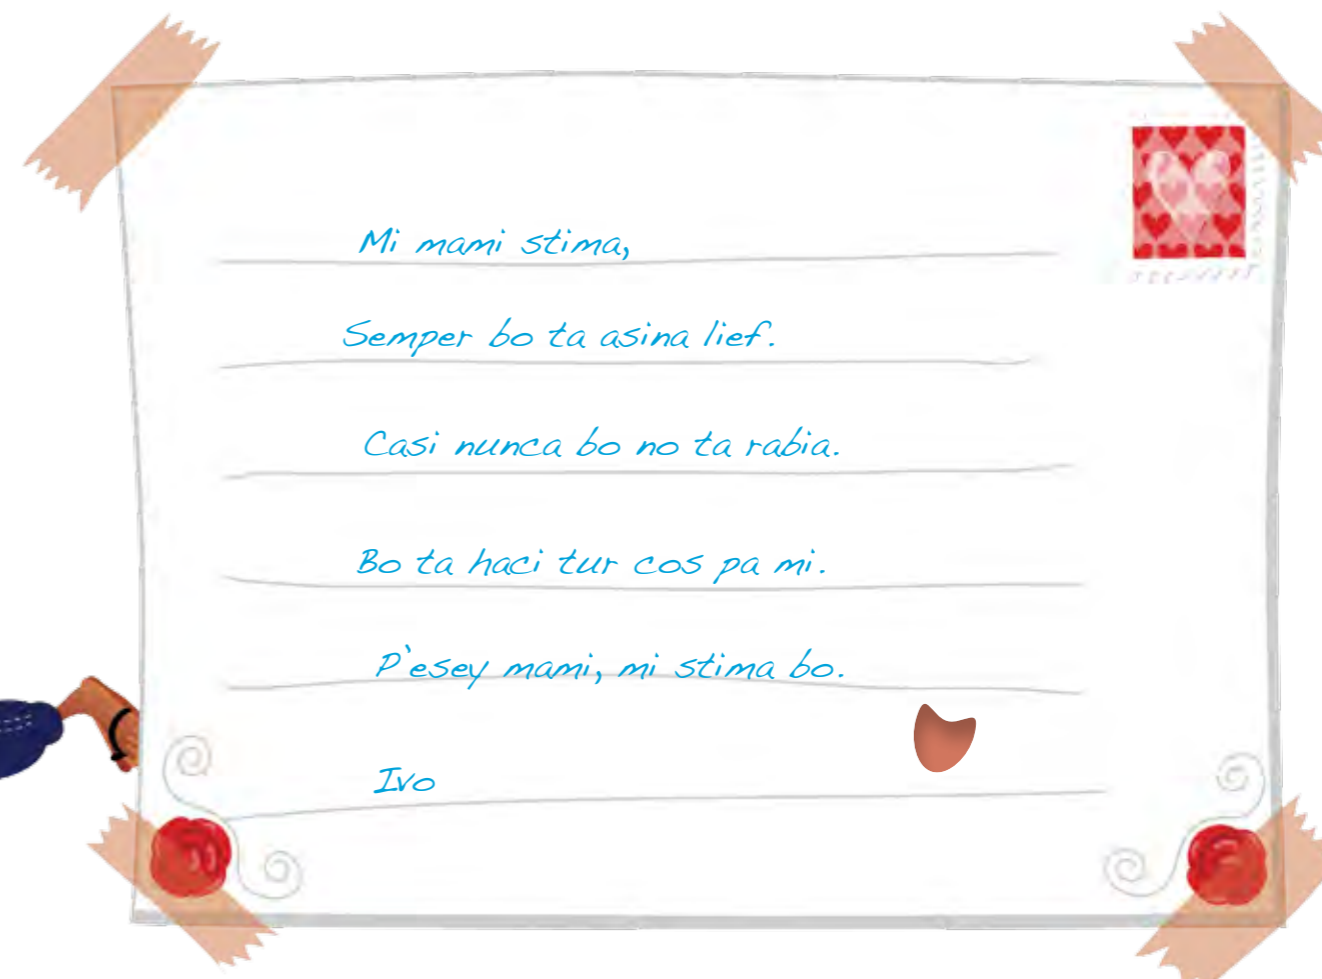 Mi mami stima,
Semper bo ta asina lief.
Casi nunca bo no ta rabia.
Bo ta haci tur cos pa mi.
P'esey mami, mi stima bo.
Ivo